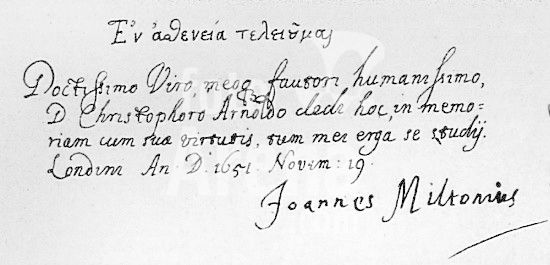 Ἐν ἀσθενείᾳ τελειοῦμαι
Doctissimo Viro, meoq; fautori humanissimo,
D. Christophoro Arnoldo dedi hoc, in memo=
riam cum suæ virtutis, tum mei erga se studij.
Londini An. D. 1651. Novem: 19.
Joannes Miltonius